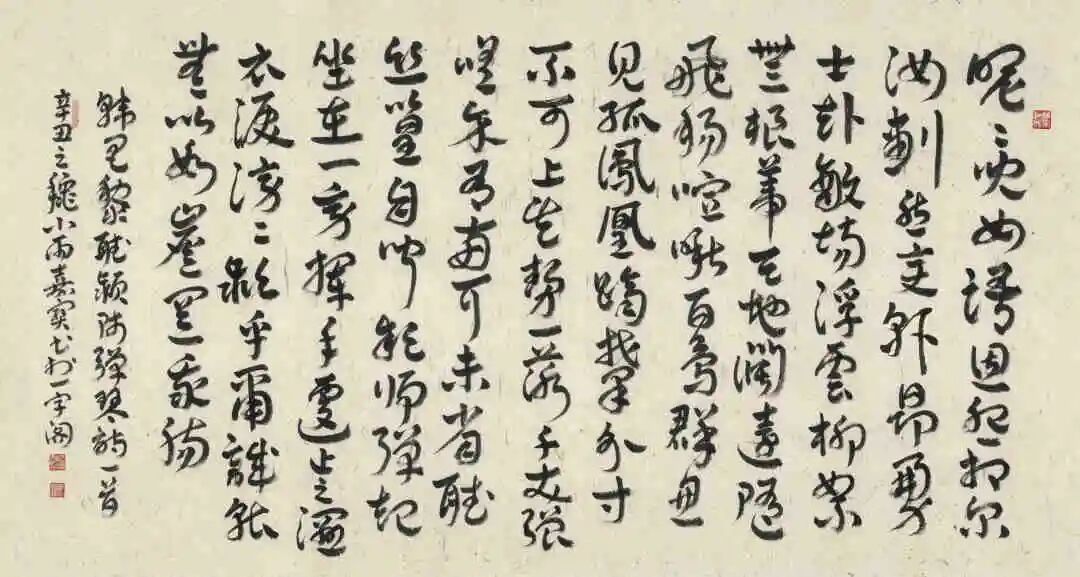 昵〻兒女語恩怨相尔
汝劃然變軒昂勇
士赴敵場浮雲柳絮
無根蒂天地闊遠隨
飛揚喧啾百鳥群忽
見孤鳳凰躋攀分寸
不可上失勢一落千丈強
嗟余有兩耳未省聽
絲篁自聞穎師彈起
坐在一旁推手遽止之濕
衣淚滂〻穎乎爾誠能
無以冰炭置我腸
韓昌黎聽穎師彈琴詩一首
辛丑之龝小雨嘉寶書於一字閣